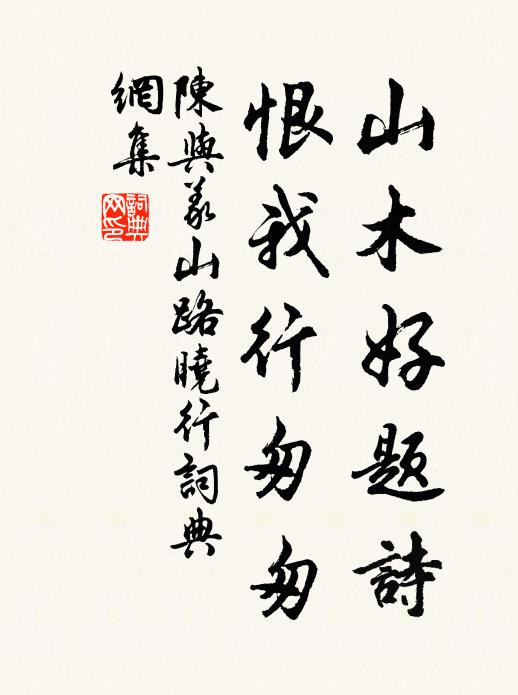 山木好題詩
恨我行匆匆
陳與義山路曉行詞典
網集
詞典
网印